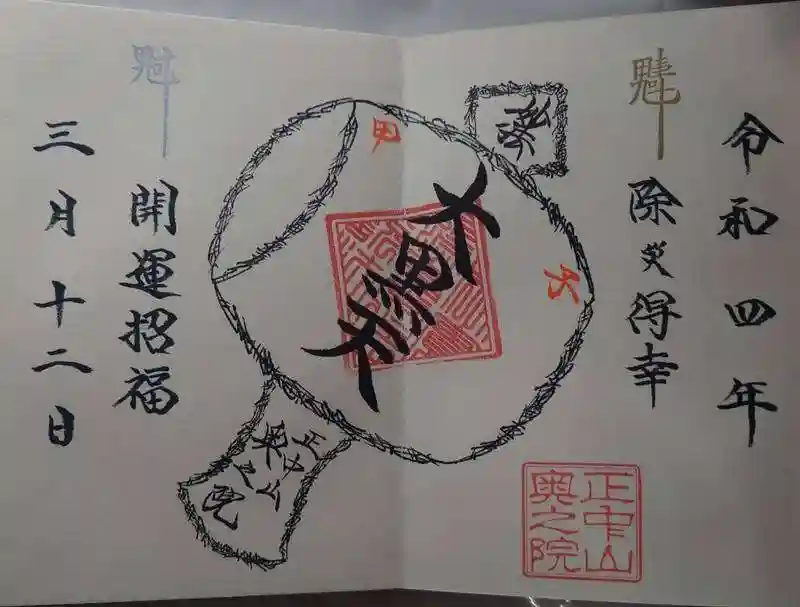 令和四年
除災得幸
甲
子
大黒天
正中山
奥之院
開運招福
三月十二日
正中山
奥之院